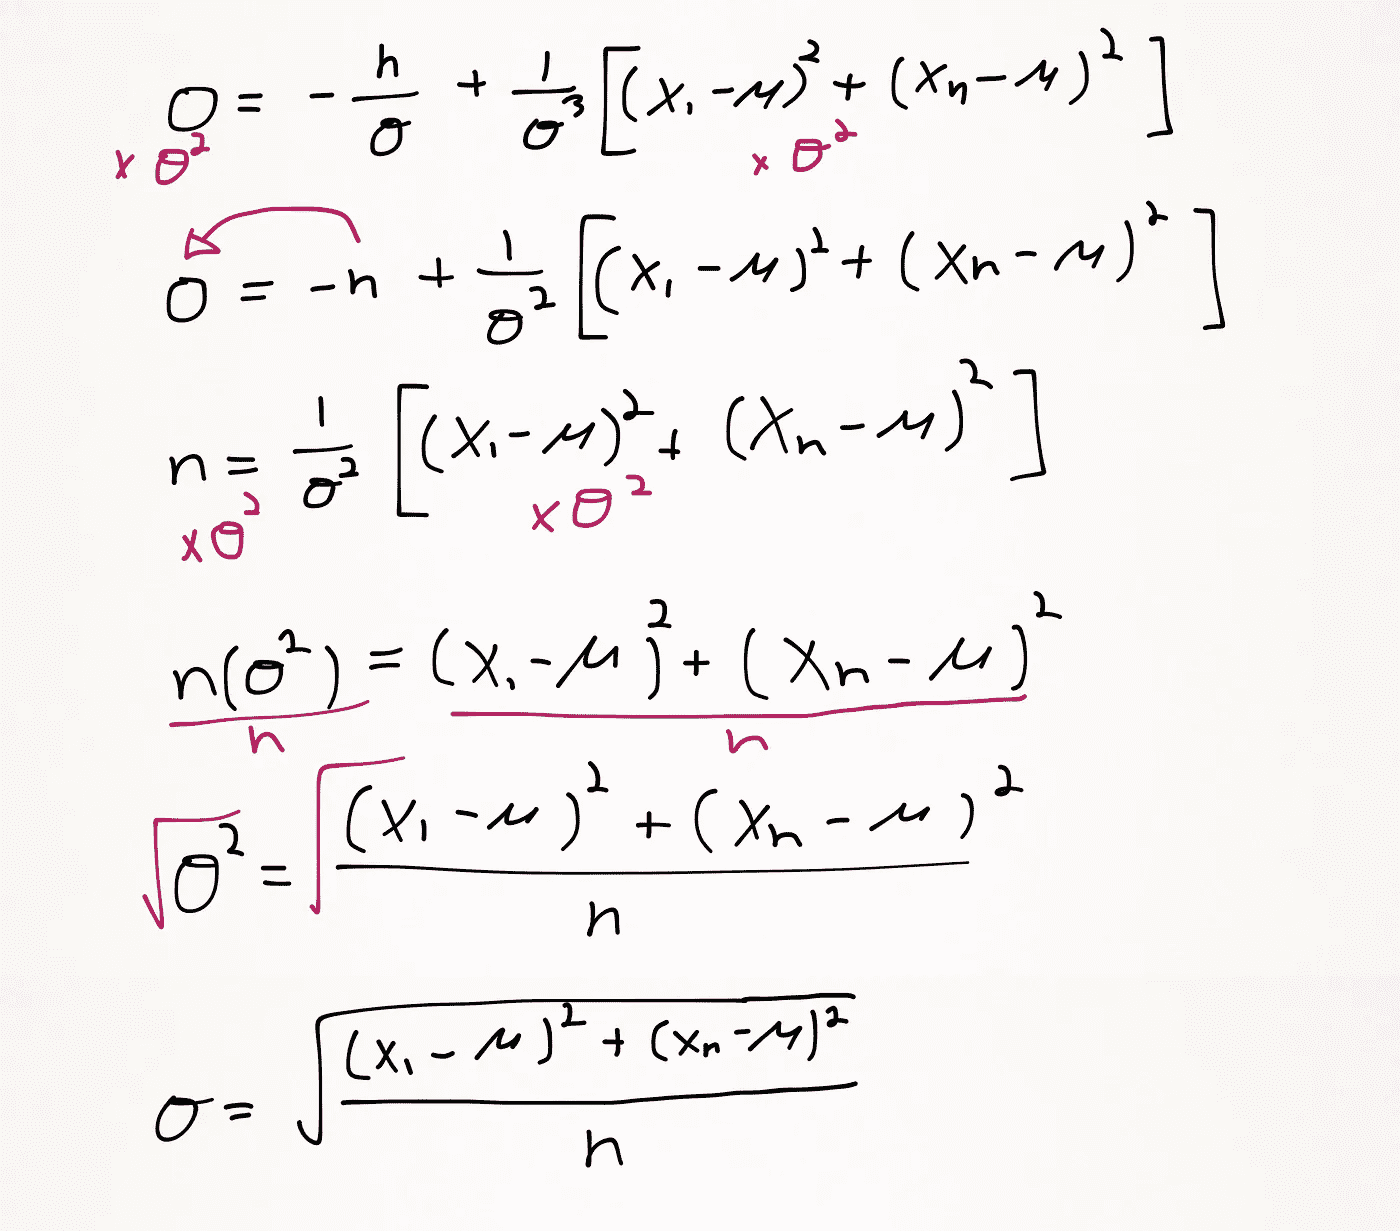 0 = - n/σ + 1/σ³ [(x₁ - μ)² + (xₙ - μ)²]
x σ² x σ²
0 = -n + 1/σ² [(x₁ - μ)² + (xₙ - μ)²]
n = 1/σ² [(x₁ - μ)² + (xₙ - μ)²]
x σ² x σ²
n(σ²) = (x₁ - μ)² + (xₙ - μ)²
n n
√σ² = √ (x₁ - μ)² + (xₙ - μ)²
n
σ = √ (x₁ - μ)² + (xₙ - μ)²
n